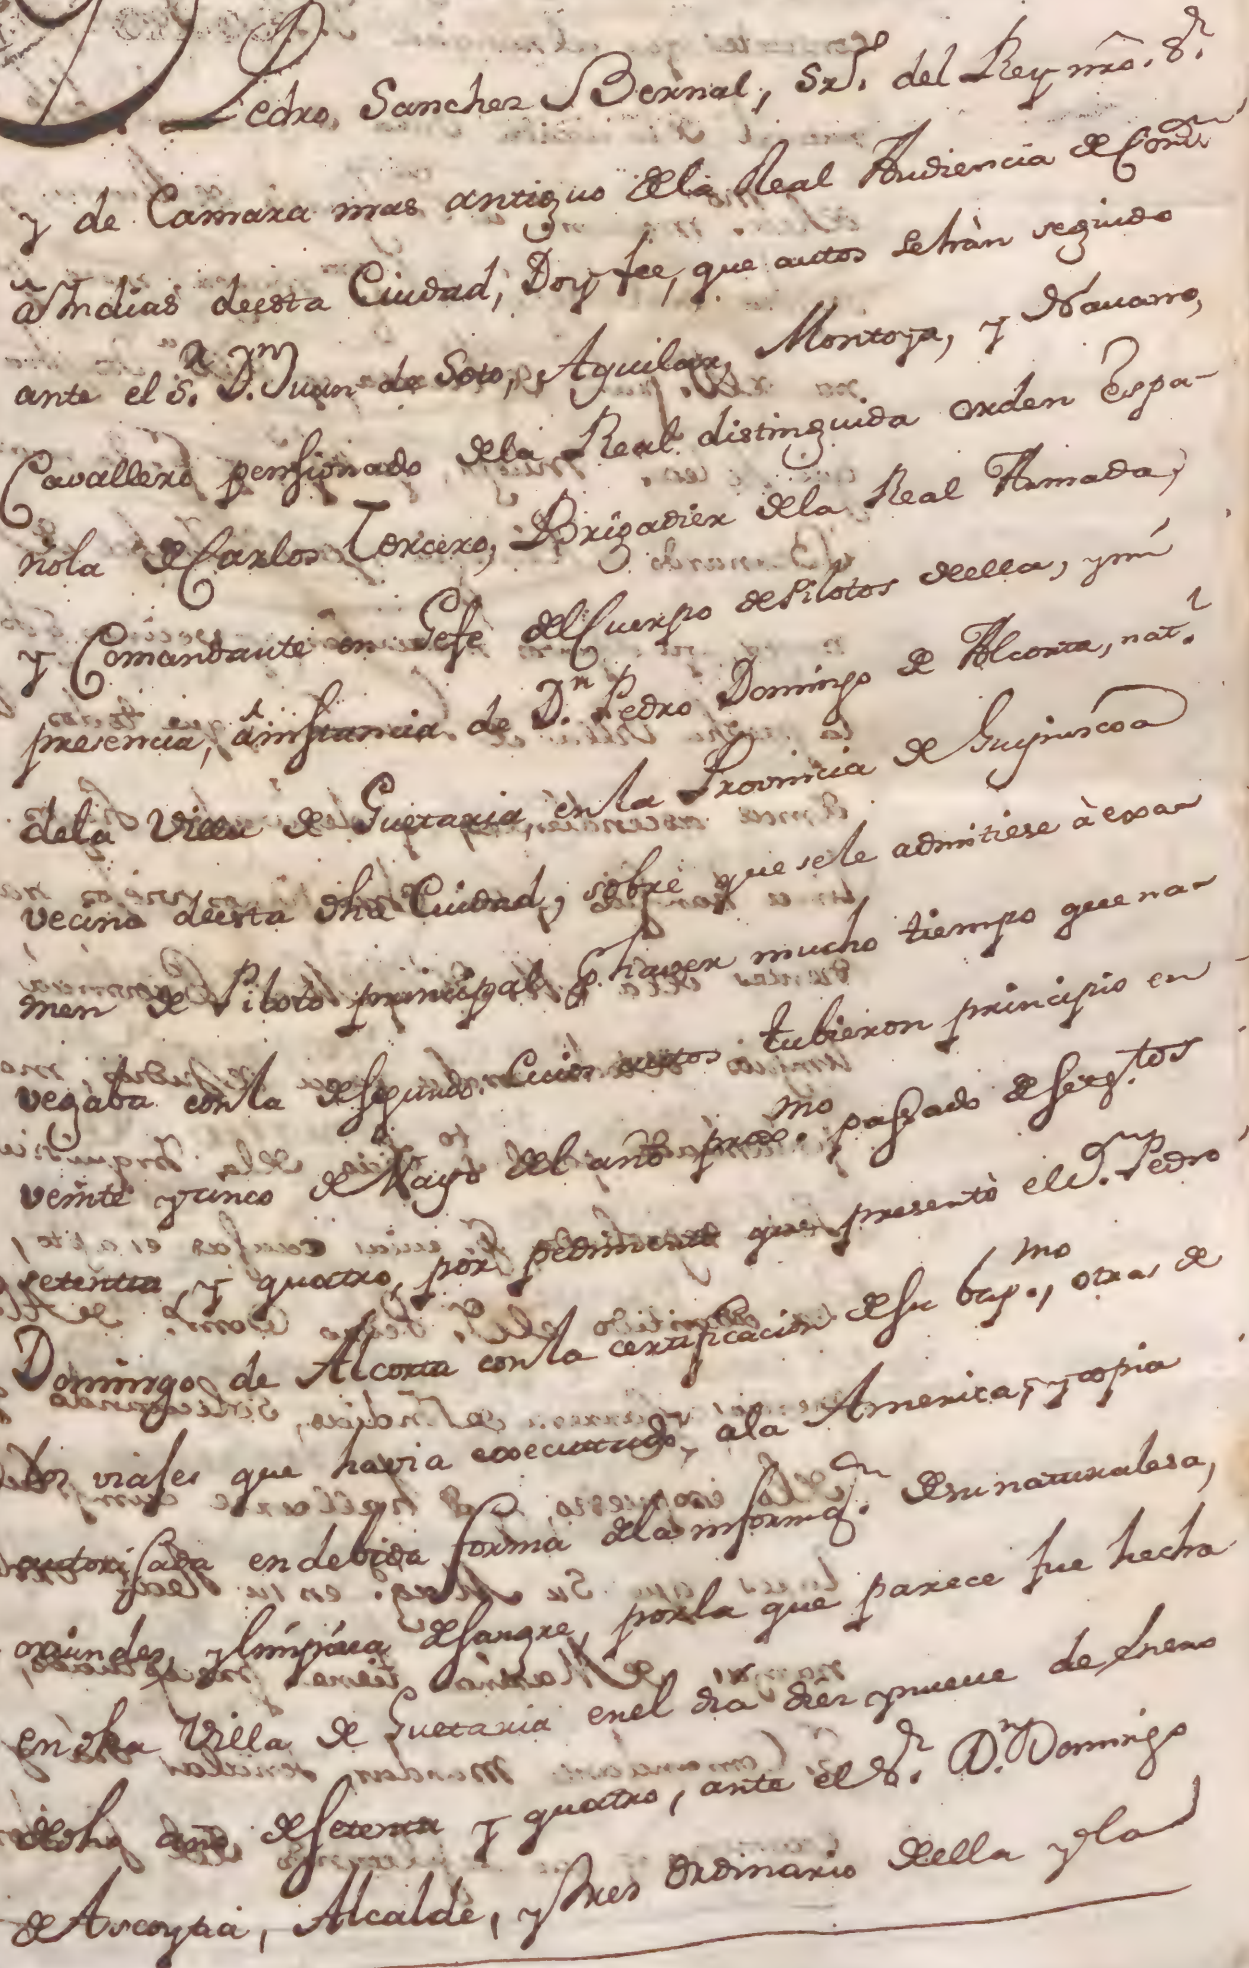 Pedro Sanchez Bernal, Srio. del Rey nro. Sr.
y de Camara mas antiguo dela Real Audiencia de Contn.
à Indias deesta Ciudad, Doy fee, que autos sehàn seguido
ante el Sr. Dn. Juan de Soto, Aguilar, Montoya, y Navarro,
Cavallero penssionado dela Real distinguida orden Espa-
ñola de Carlos Tercero, Brigadier dela Real Armada,
y Comandante en Gefe del Cuerpo de Pilotos deella, y mi
presencia, à instancia de Dn. Pedro Domingo de Alcorta, natl.
dela Villa de Guetaria, en la Provincia de Guipuscoa
vecino deesta dha Ciudad, sobre que sele admitiese à exa-
men de Piloto principal p. haver mucho tiempo que na-
vegaba conla de segundo. Cuios autos tubieron principio en
veinte y cinco de Mayo del año proxmo. passado de setztos
setenta, y quatro, por pedimento que presentò el Dn. Pedro
Domingo de Alcorta conla certificacion desu bapmo., otras de
los viajes que havia executado, ala America, y copia
autorisada endebida forma dela informn. desu naturalesa,
oriundes, y limpiesa desangre, porla que parece fue hecha
en dha Villa de Guetaria enel dia diez y nueve de Enero
dedho año desetenta y quatro, ante el Sr. Dn. Domingo
de Ascoytia, Alcalde, y Jues ordinario deella y la